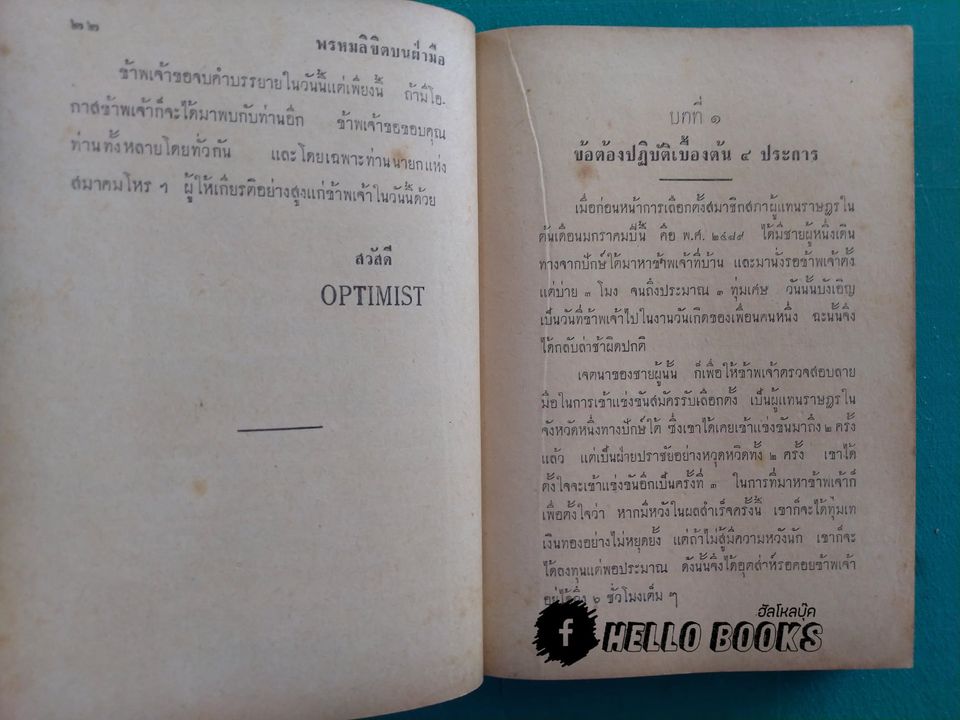 ๒๒
พรหมลิขิตบนฝ่ามือ
ข้าพเจ้าขอจบคำบรรยายในวันนี้แต่เพียงนี้ ถ้ามีโอ-
กาสข้าพเจ้าก็จะได้มาพบกับท่านอีก ข้าพเจ้าขอขอบคุณ
ท่านทั้งหลายโดยทั่วกัน และโดยเฉพาะท่านนายกแห่ง
สมาคมโหร ฯ ผู้ให้เกียรติอย่างสูงแก่ข้าพเจ้าในวันนี้ด้วย
สวัสดี
OPTIMIST
บทที่ ๑
ข้อต้องปฏิบัติเบื้องต้น ๔ ประการ
เมื่อก่อนหน้าการเลือกตั้งสมาชิกสภาผู้แทนราษฎรใน
ต้นเดือนมกราคมปีนี้ คือ พ.ศ. ๒๔๘๙ ได้มีชายผู้หนึ่งเดิน
ทางจากปักษ์ใต้มาหาข้าพเจ้าที่บ้าน และมานั่งรอข้าพเจ้าตั้ง
แต่บ่าย ๓ โมง จนถึงประมาณ ๓ ทุ่มเศษ วันนั้นบังเอิญ
เป็นวันที่ข้าพเจ้าไปในงานวันเกิดของเพื่อนคนหนึ่ง ฉะนั้นจึง
ได้กลับล่าช้าผิดปกติ
เจตนาของชายผู้นั้น ก็เพื่อให้ข้าพเจ้าตรวจสอบลาย
มือในการเข้าแข่งขันสมัครรับเลือกตั้ง เป็นผู้แทนราษฎรใน
จังหวัดหนึ่งทางปักษ์ใต้ ซึ่งเขาได้เคยเข้าแข่งขันมาถึง ๒ ครั้ง
แล้ว แต่เป็นฝ่ายปราชัยอย่างหวุดหวิดทั้ง ๒ ครั้ง เขาได้
ตั้งใจจะเข้าแข่งขันอีกเป็นครั้งที่ ๓ ในการที่มาหาข้าพเจ้าก็
เพื่อตั้งใจว่า หากมีหวังในผลสำเร็จครั้งนี้ เขาก็จะได้ทุ่มเท
เงินทองอย่างไม่หยุดยั้ง แต่ถ้าไม่สู้มีความหวังนัก เขาก็จะ
ได้ลงทุนแต่พอประมาณ ดังนั้นจึงได้อุตส่าห์รอคอยข้าพเจ้า
อยู่ได้ถึง ๖ ชั่วโมงเต็ม ๆ
ฮัลโหลบุ๊ค
f HELLO BOOKS